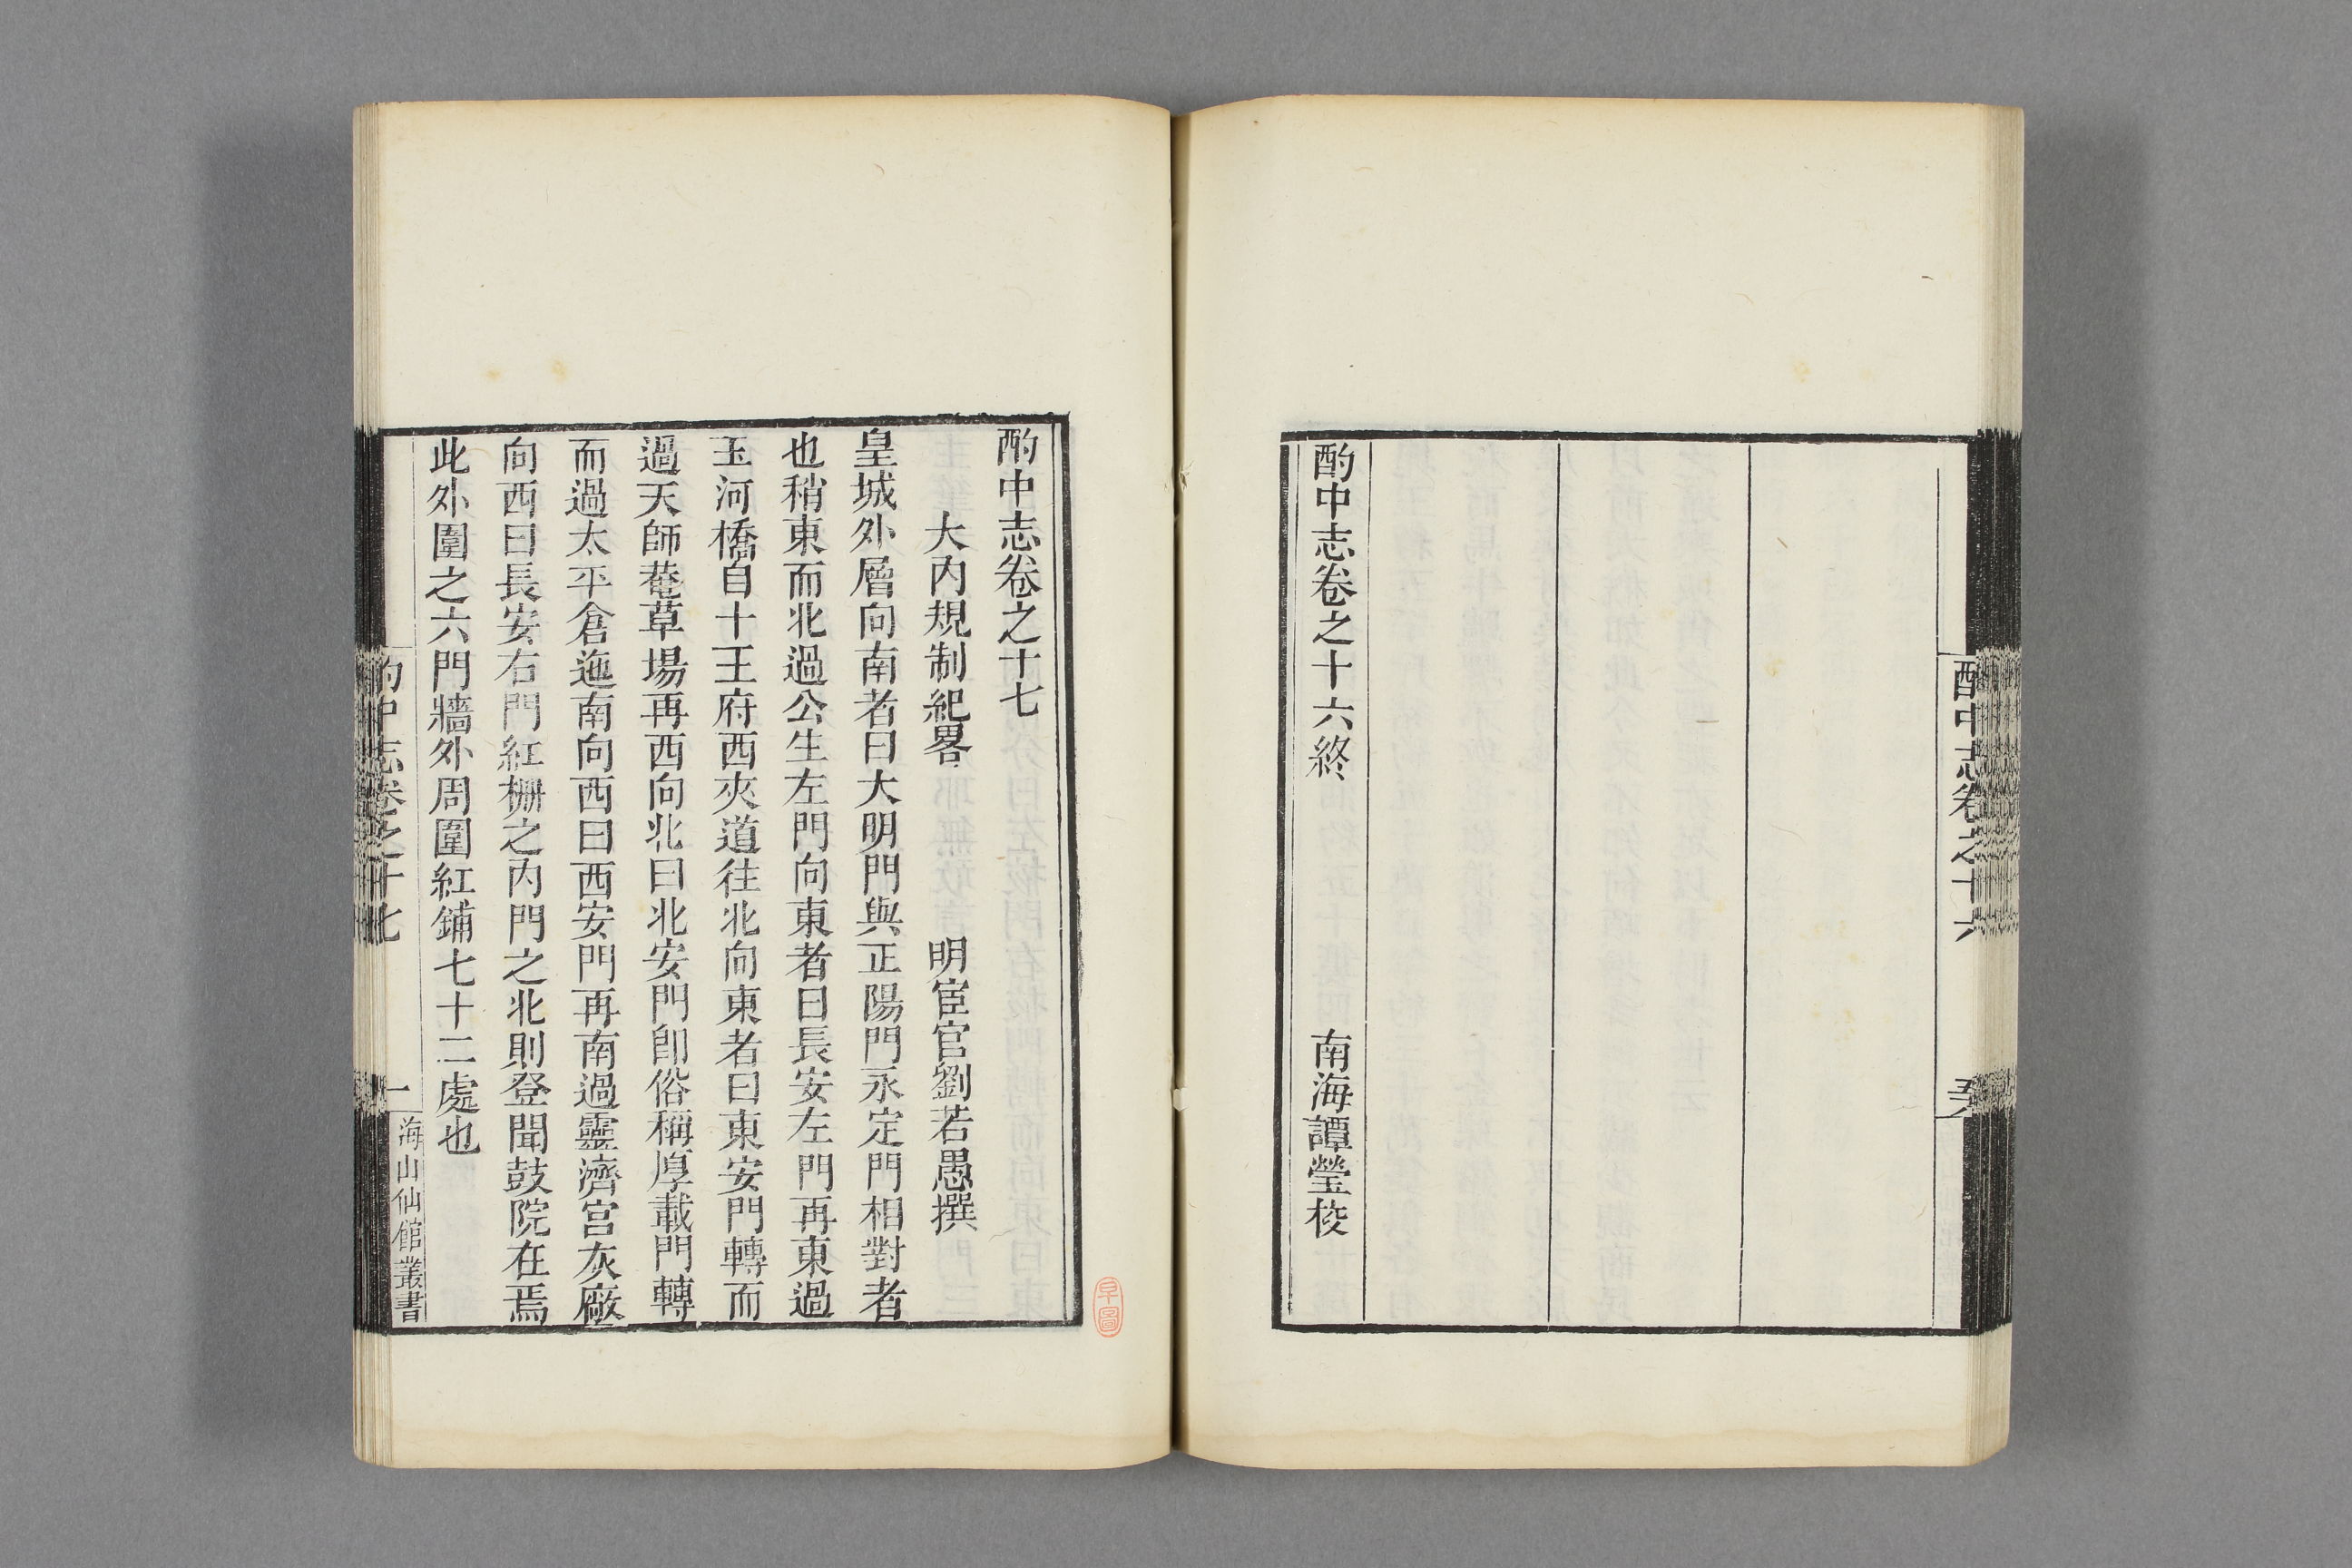 酌中志卷之十六
酌中志卷之十六終
南海譚瑩校
酌中志卷之十七
大內規制紀畧
明宦官劉若愚撰
皇城外層向南者曰大明門與正陽門永定門相對者
也稍東而北過公生左門向東者曰長安左門再東過
玉河橋自十王府西夾道往北向東者曰東安門轉而
過天師菴草場再西向北曰北安門卽俗稱厚載門轉
而過太平倉迤南向西曰西安門再南過靈濟宮灰廠
向西曰長安右門紅柵之內門之北則登聞鼓院在焉
此外圍之六門牆外周圍紅鋪七十二處也
酌中志卷之十七
一
海山仙館叢書
早圖